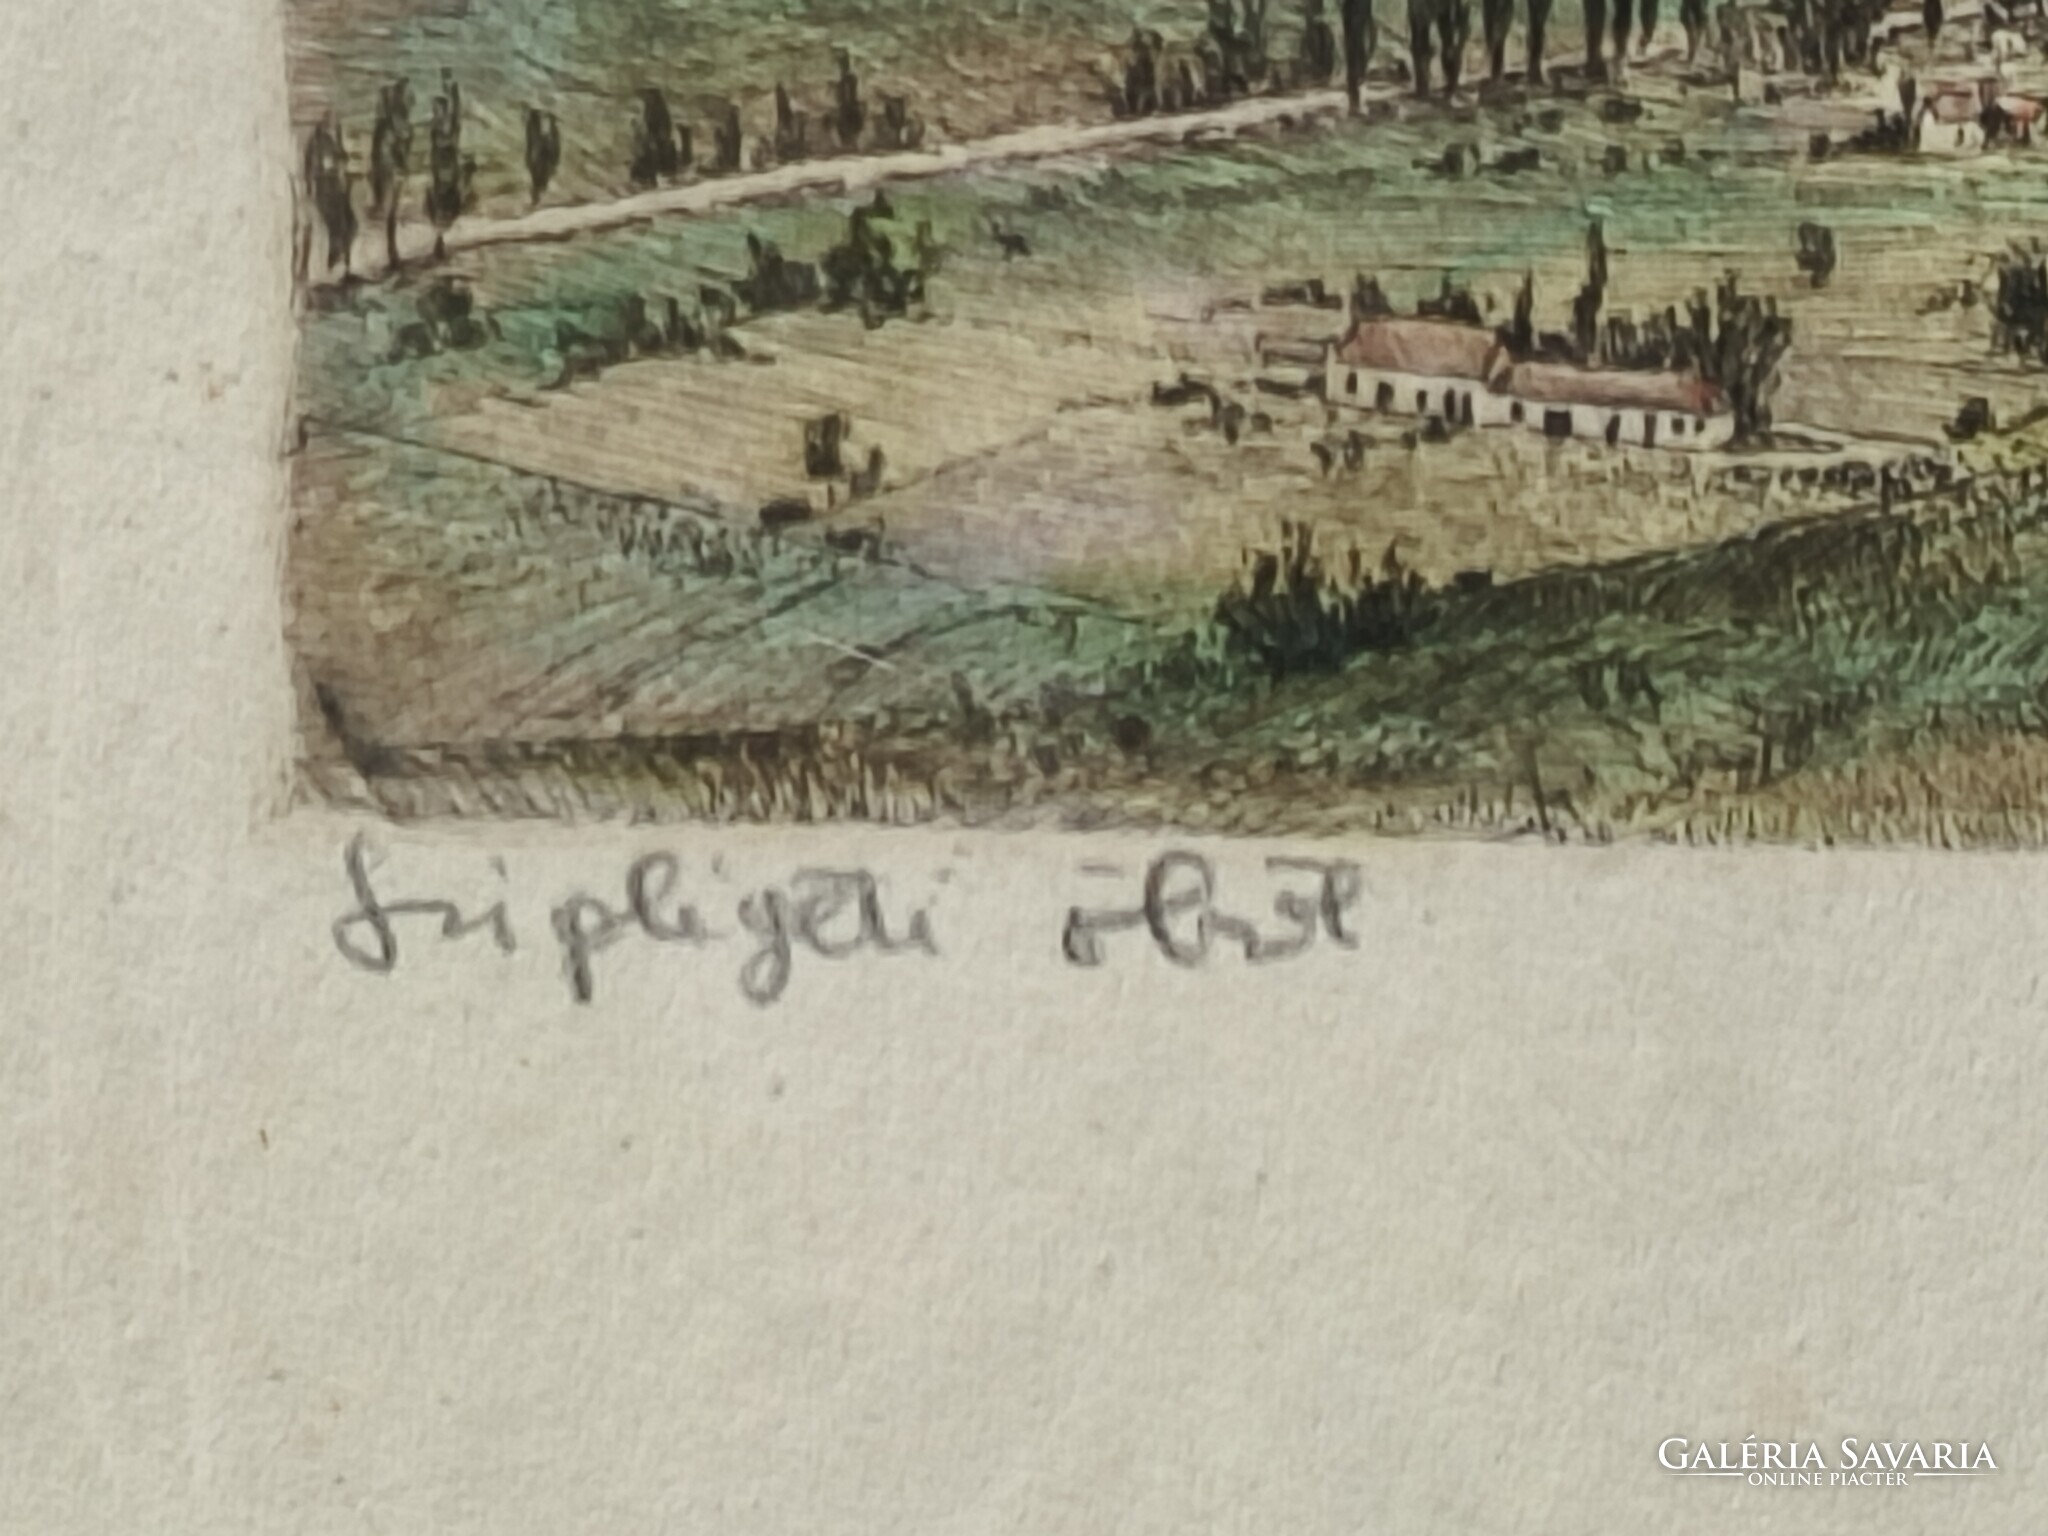 Szigligeti öböl
GALÉRIA SAVARIA
ONLINE PIACTÉR